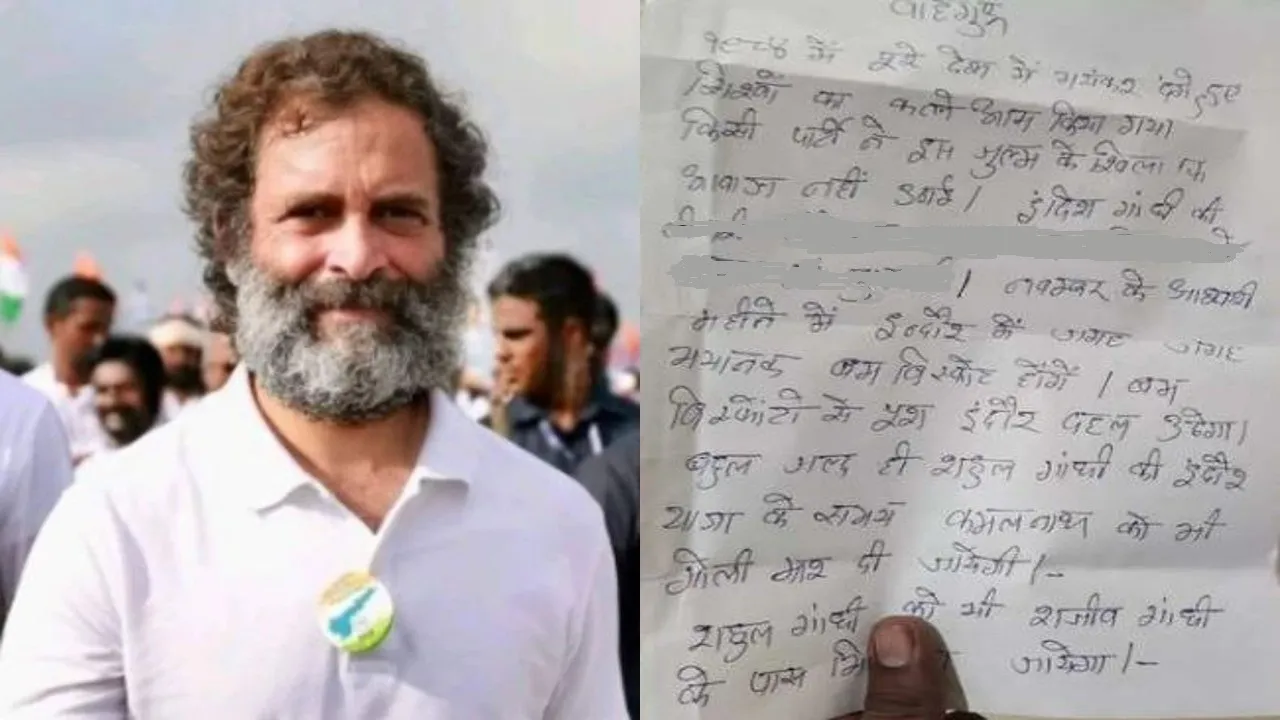 वाहेगुरू
१९८४ में पूरे देश में भयंकर दंगे हुए
सिखों का कत्ले आम किया गया
किसी पार्टी ने इस जुल्म के खिलाफ
आवाज नहीं उठाई। इंदिरा गांधी की
। नवम्बर के आखरी
महीने में इन्दौर में जगह जगह
भयानक बम विस्फोट होंगें। बम
विस्फोटो से पूरा इंदौर दहल उठेगा।
बहुत जल्द ही राहुल गांधी की इंदौर
यात्रा के समय कमलनाथ को भी
गोली मार दी जायेगी।-
राहुल गांधी को भी राजीव गांधी
के पास जायेगा।-